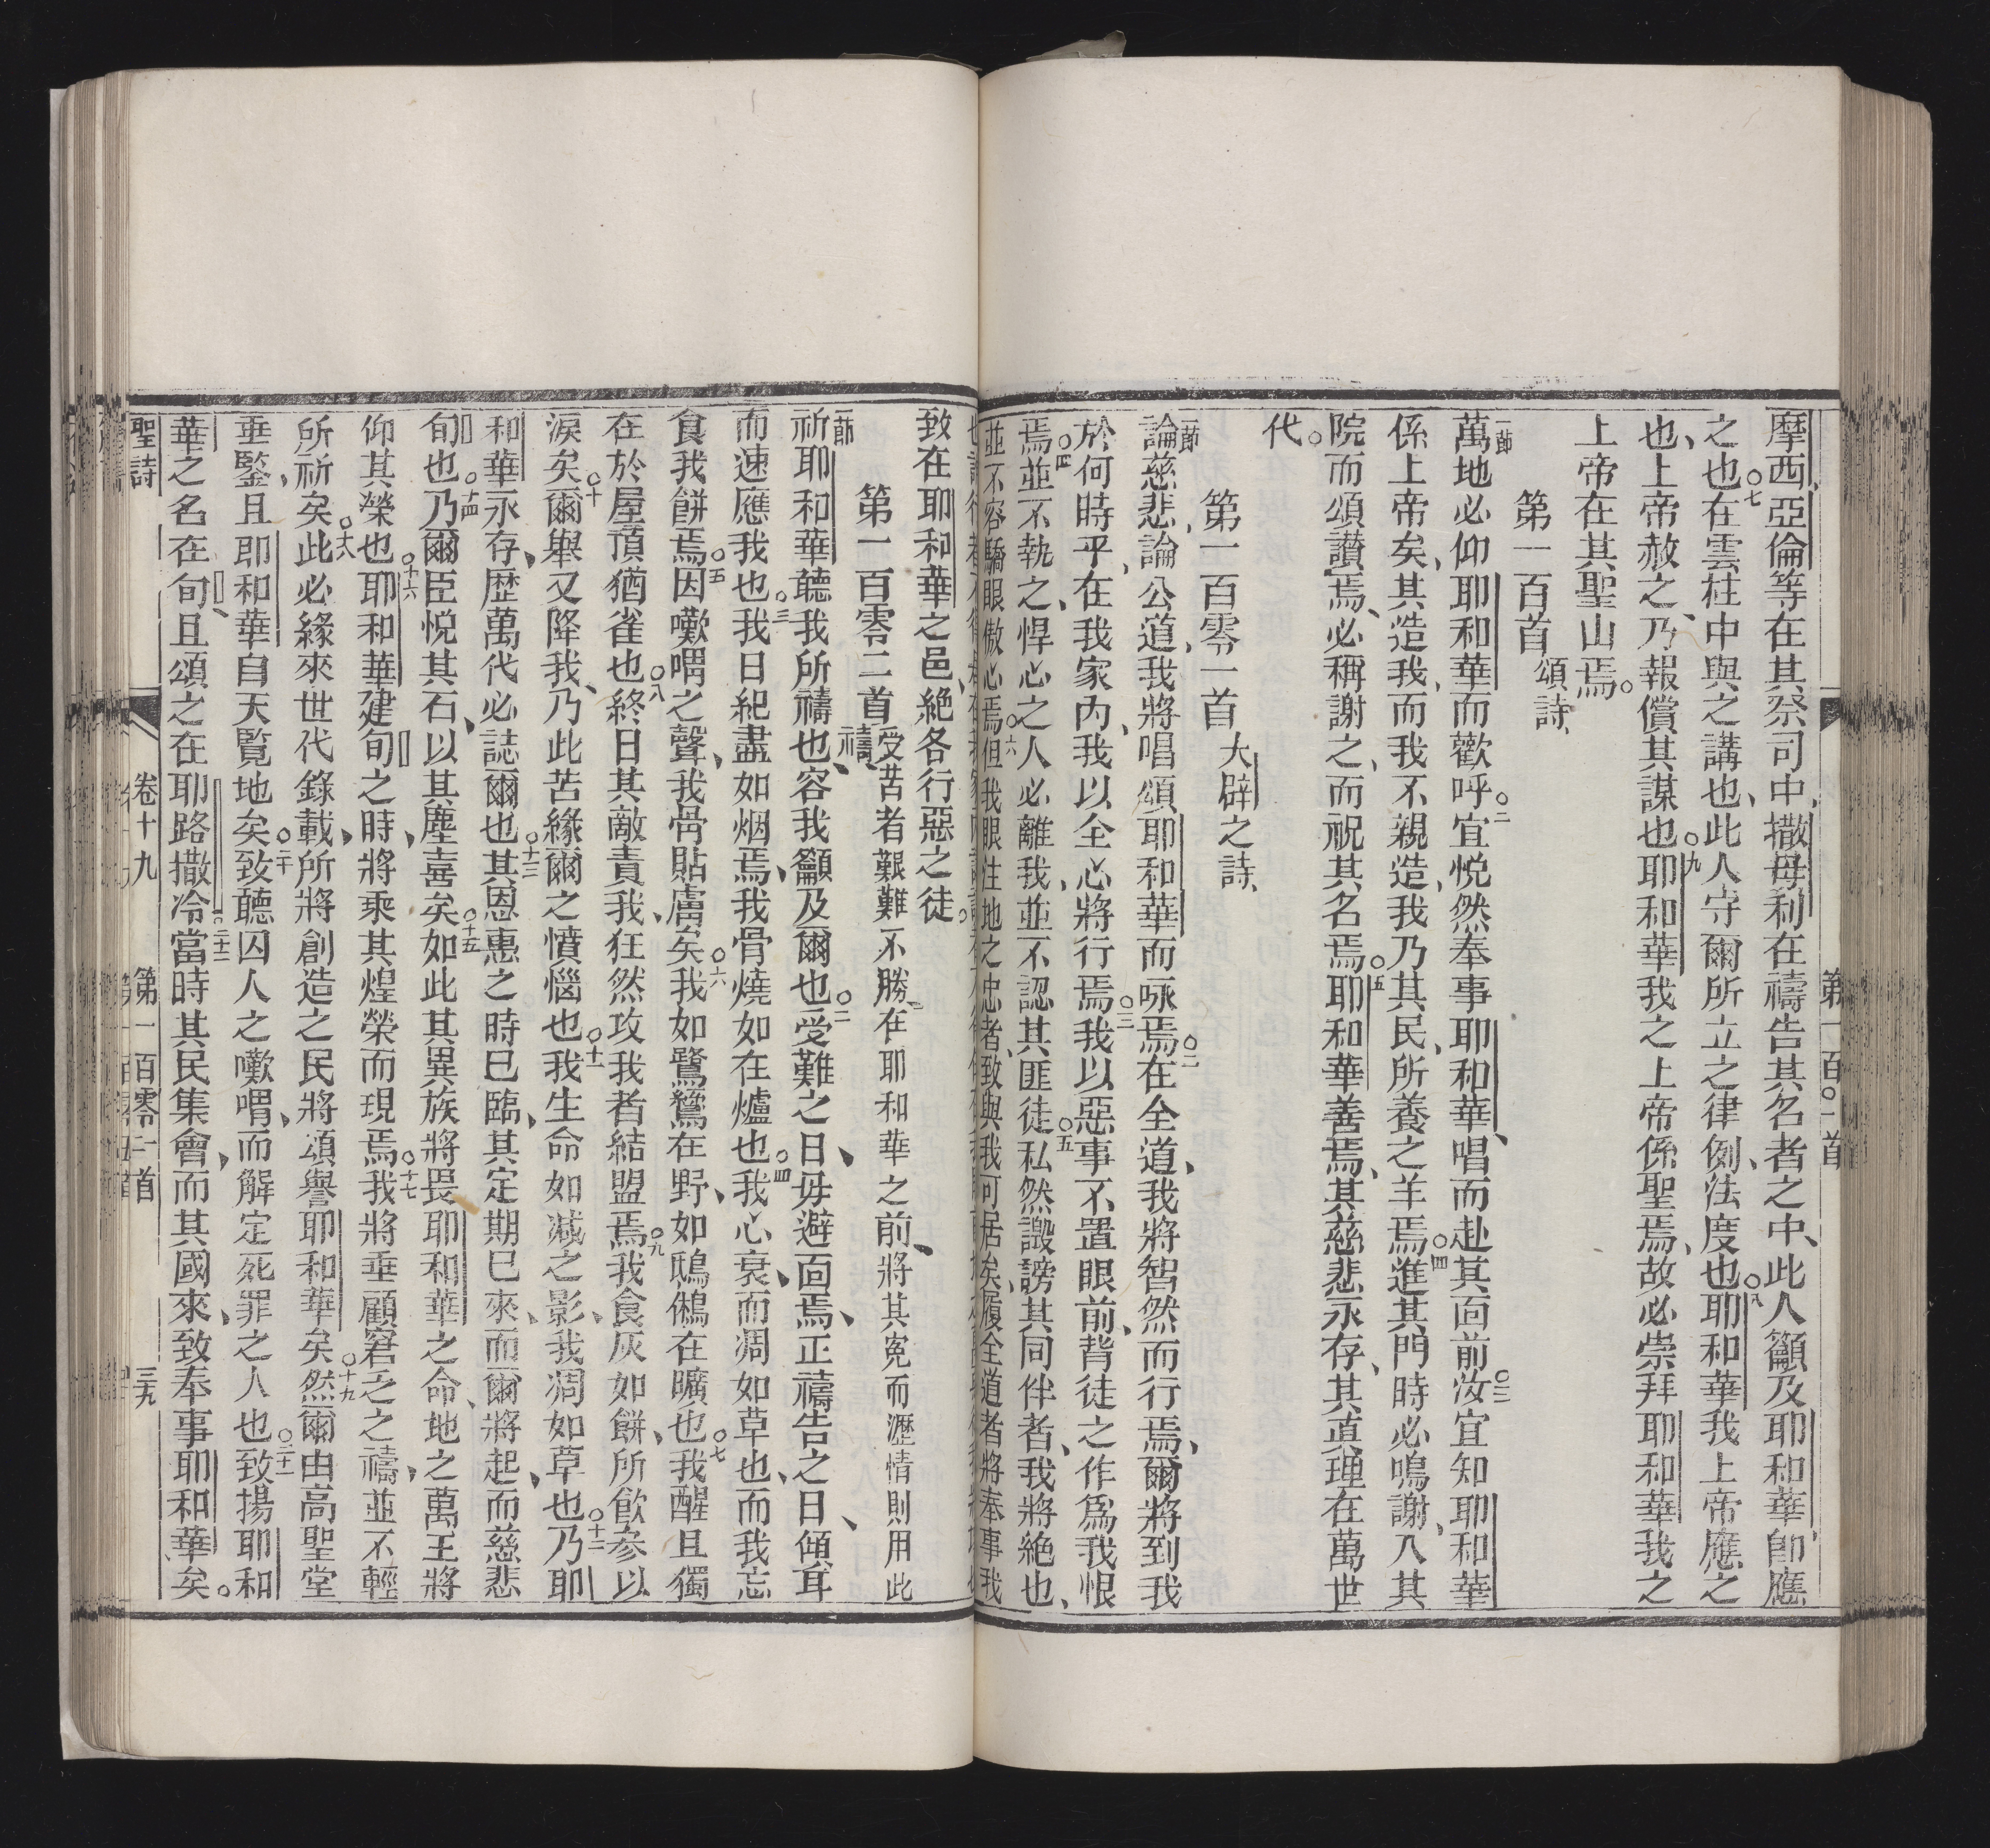 摩西、亞倫等在其祭司中、撒母利在禱告其名者之中、此人籲及耶和華、卽應
之也。七在雲柱中與之講也、此人守爾所立之律例、法度也。八耶和華我上帝應之
也、上帝赦之、乃報償其謀也。九耶和華我之上帝係聖焉、故必崇拜耶和華我之
上帝在其聖山焉。
第一百首 頌詩、
一節萬地必仰耶和華而歡呼。二宜悅然奉事耶和華、唱而赴其面前。三汝宜知耶和華
係上帝矣、其造我、而我不親造、我乃其民、所養之羊焉。四進其門時必鳴謝、入其
院而頌讚焉、必稱謝之、而祝其名焉。五耶和華善焉、其慈悲永存、其直理在萬世
代。
第一百零一首 大辟之詩、
一節論慈悲、論公道、我將唱頌耶和華而咏焉。二在全道、我將智然而行焉、爾將到我
於何時乎、在我家內、我以全心將行焉。三我以惡事不置眼前、背徒之作爲我恨
焉、並不執之、四悍心之人必離我、並不認其匪徒。五私然譭謗其同伴者、我將絶也、
並不容驕眼傲心焉。六但我眼注地之忠者、致與我可居矣、履全道者將奉事我
致在耶和華之邑、絶各行惡之徒。
第一百零二首 受苦者艱難不勝、在耶和華之前、將其寃而瀝情則用此
禱、
一節祈耶和華聽我所禱也、容我籲及爾也。二受難之日、毋避面焉、正禱告之日、傾耳
而速應我也。三我日紀盡如烟焉、我骨燒如在爐也。四我心衰、而凋如草也、而我忘
食我餅焉。五因嘅喟之聲、我骨貼膚矣。六我如鷺鶿在野、如鴟鵂在曠也。七我醒且獨
在於屋頂猶雀也。八終日其敵責我、狂然攻我者結盟焉。九我食灰如餅、所飲參以
淚矣。十爾舉又降我、乃此苦緣爾之憤惱也。十一我生命如減之影、我凋如草也。十二乃耶
和華永存、歷萬代必誌爾也。十三其恩惠之時已臨、其定期已來、而爾將起、而慈悲
旬也。十四乃爾臣悅其石、以其塵喜矣。十五如此其異族將畏耶和華之命、地之萬王將
仰其榮也。十六耶和華建旬之時、將乘其煌榮而現焉。十七我將垂顧窘乏之禱、並不輕
所祈矣。十八此必緣來世代錄載、所將創造之民將頌譽耶和華矣。十九然爾由高聖堂
垂鑒、且耶和華自天覽地矣。二十致聽囚人之嘅喟、而解定死罪之人也。二十一致揚耶和
華之名在旬、且頌之在耶路撒冷。二十二當時其民集會、而其國來、致奉事耶和華矣。
聖詩 卷十九 第一百零一首 三九